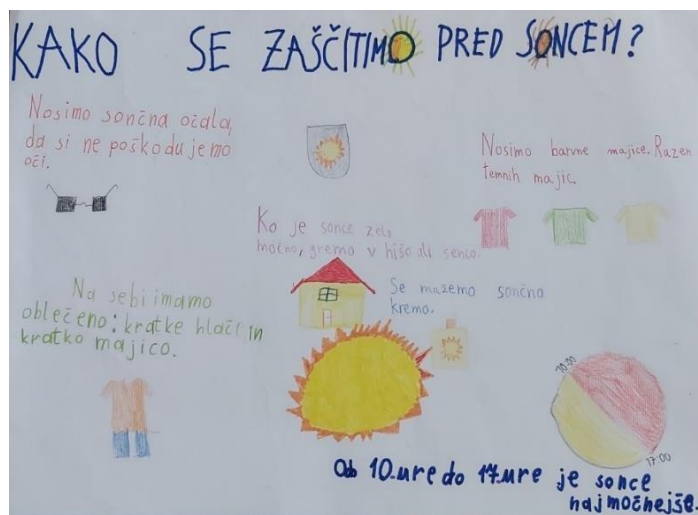 KAKO SE ZAŠČITIMO PRED SONCEM?
Nosimo sončna očala,
da si ne poškodujemo
oči.
Nosimo barvne majice. Razen
temnih majic.
Ko je sonce zelo
močno, gremo v hišo ali senco.
Se mažemo sončno
kremo.
Na sebi imamo
oblečeno: kratke hlače in
kratko majico.
10:00
17:00
Od 10.ure do 17.ure je sonce
najmočnejše.